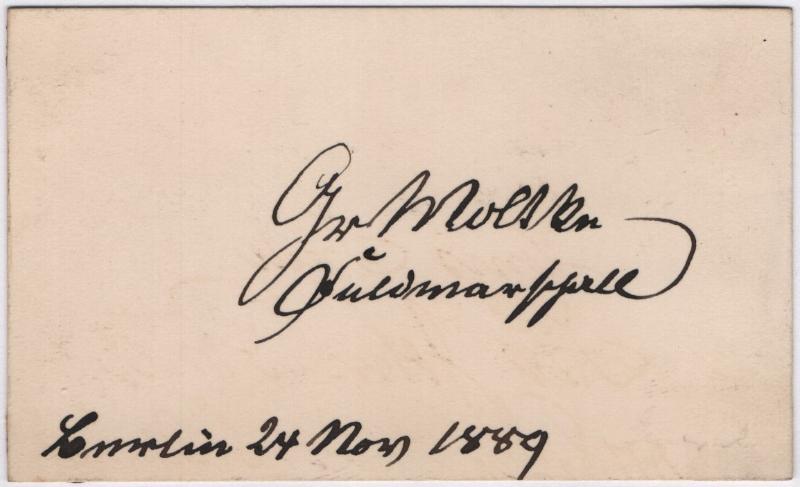 Gr Moltke
Feldmarschall
Berlin 24 Nov 1889